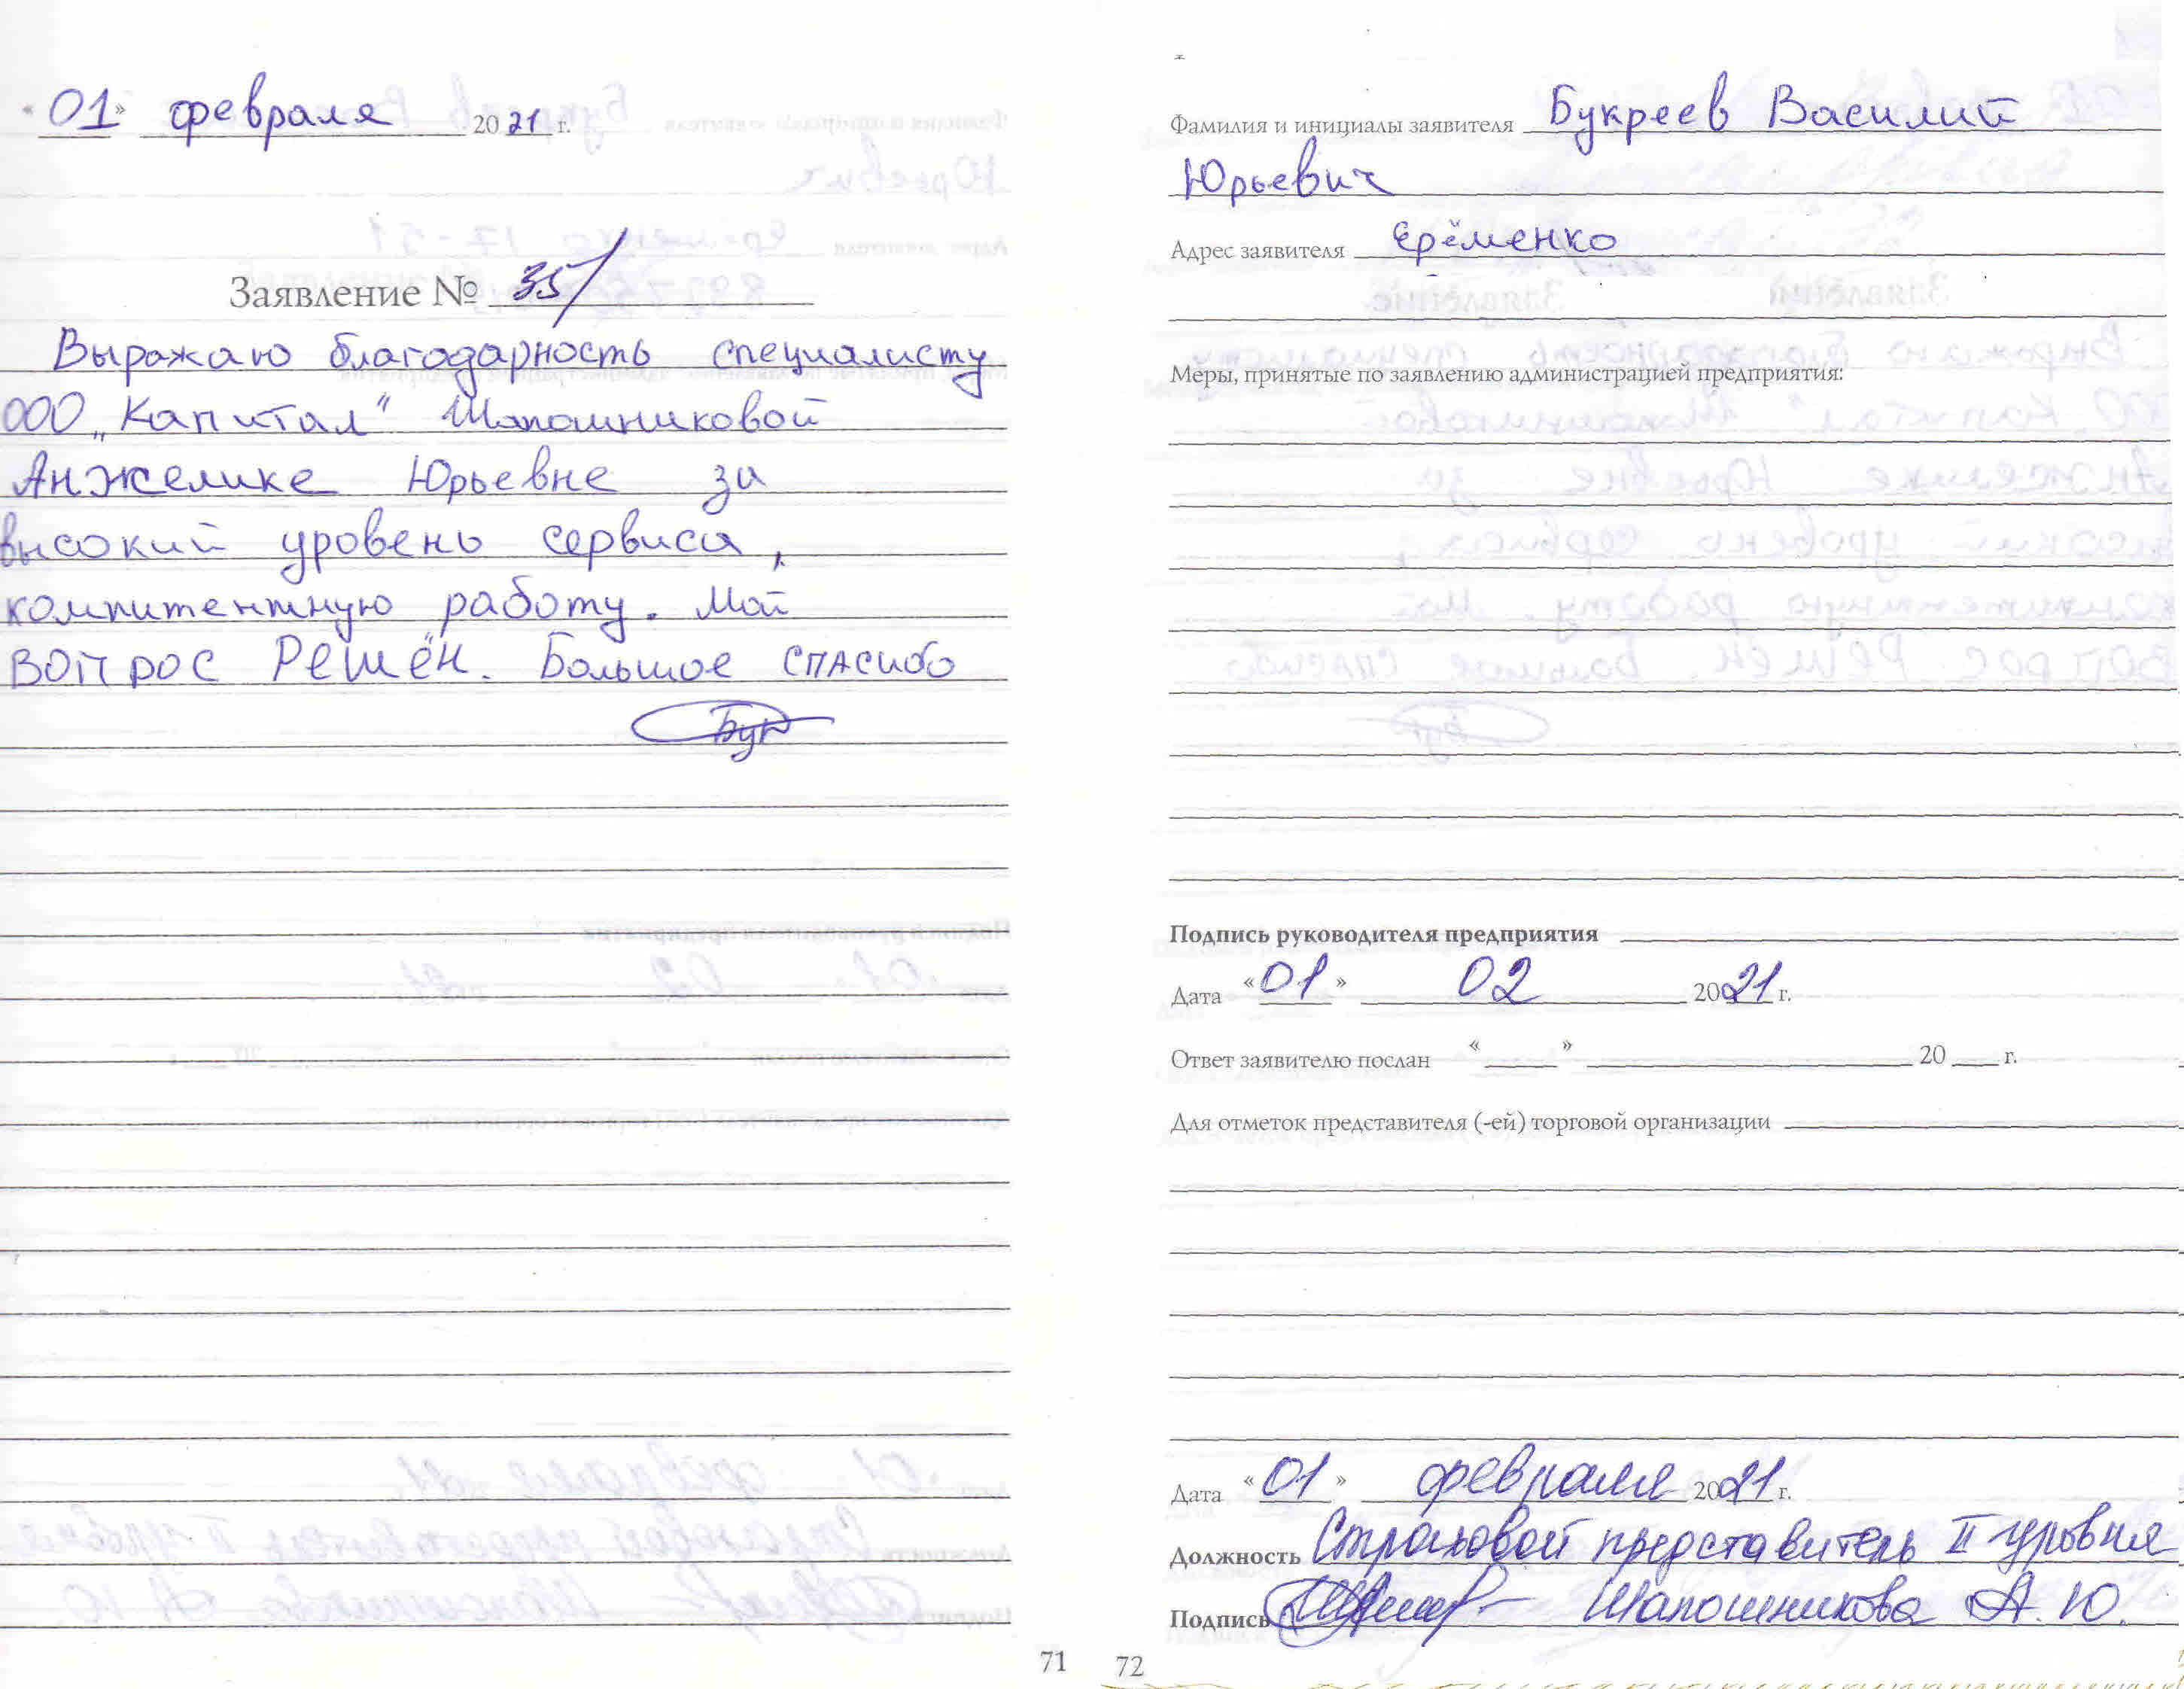 «01» февраля 2021 г.
Заявление № 35/
Выражаю благодарность специалисту
ООО „Капитал" Шапошниковой
Анжелике Юрьевне за
высокий уровень сервиса,
компитентную работу. Мой
вопрос решён. Большое спасибо
Бук
71
Фамилия и инициалы заявителя Букреев Василий
Юрьевич
Адрес заявителя Ерёменко
Меры, принятые по заявлению администрацией предприятия:
Подпись руководителя предприятия
Дата «01» 02 2021 г.
Ответ заявителю послан « » 20 г.
Для отметок представителя (-ей) торговой организации
Дата «01» февраля 2021 г.
Должность Страховой представитель II уровня
Подпись Шапошникова А.Ю.
72